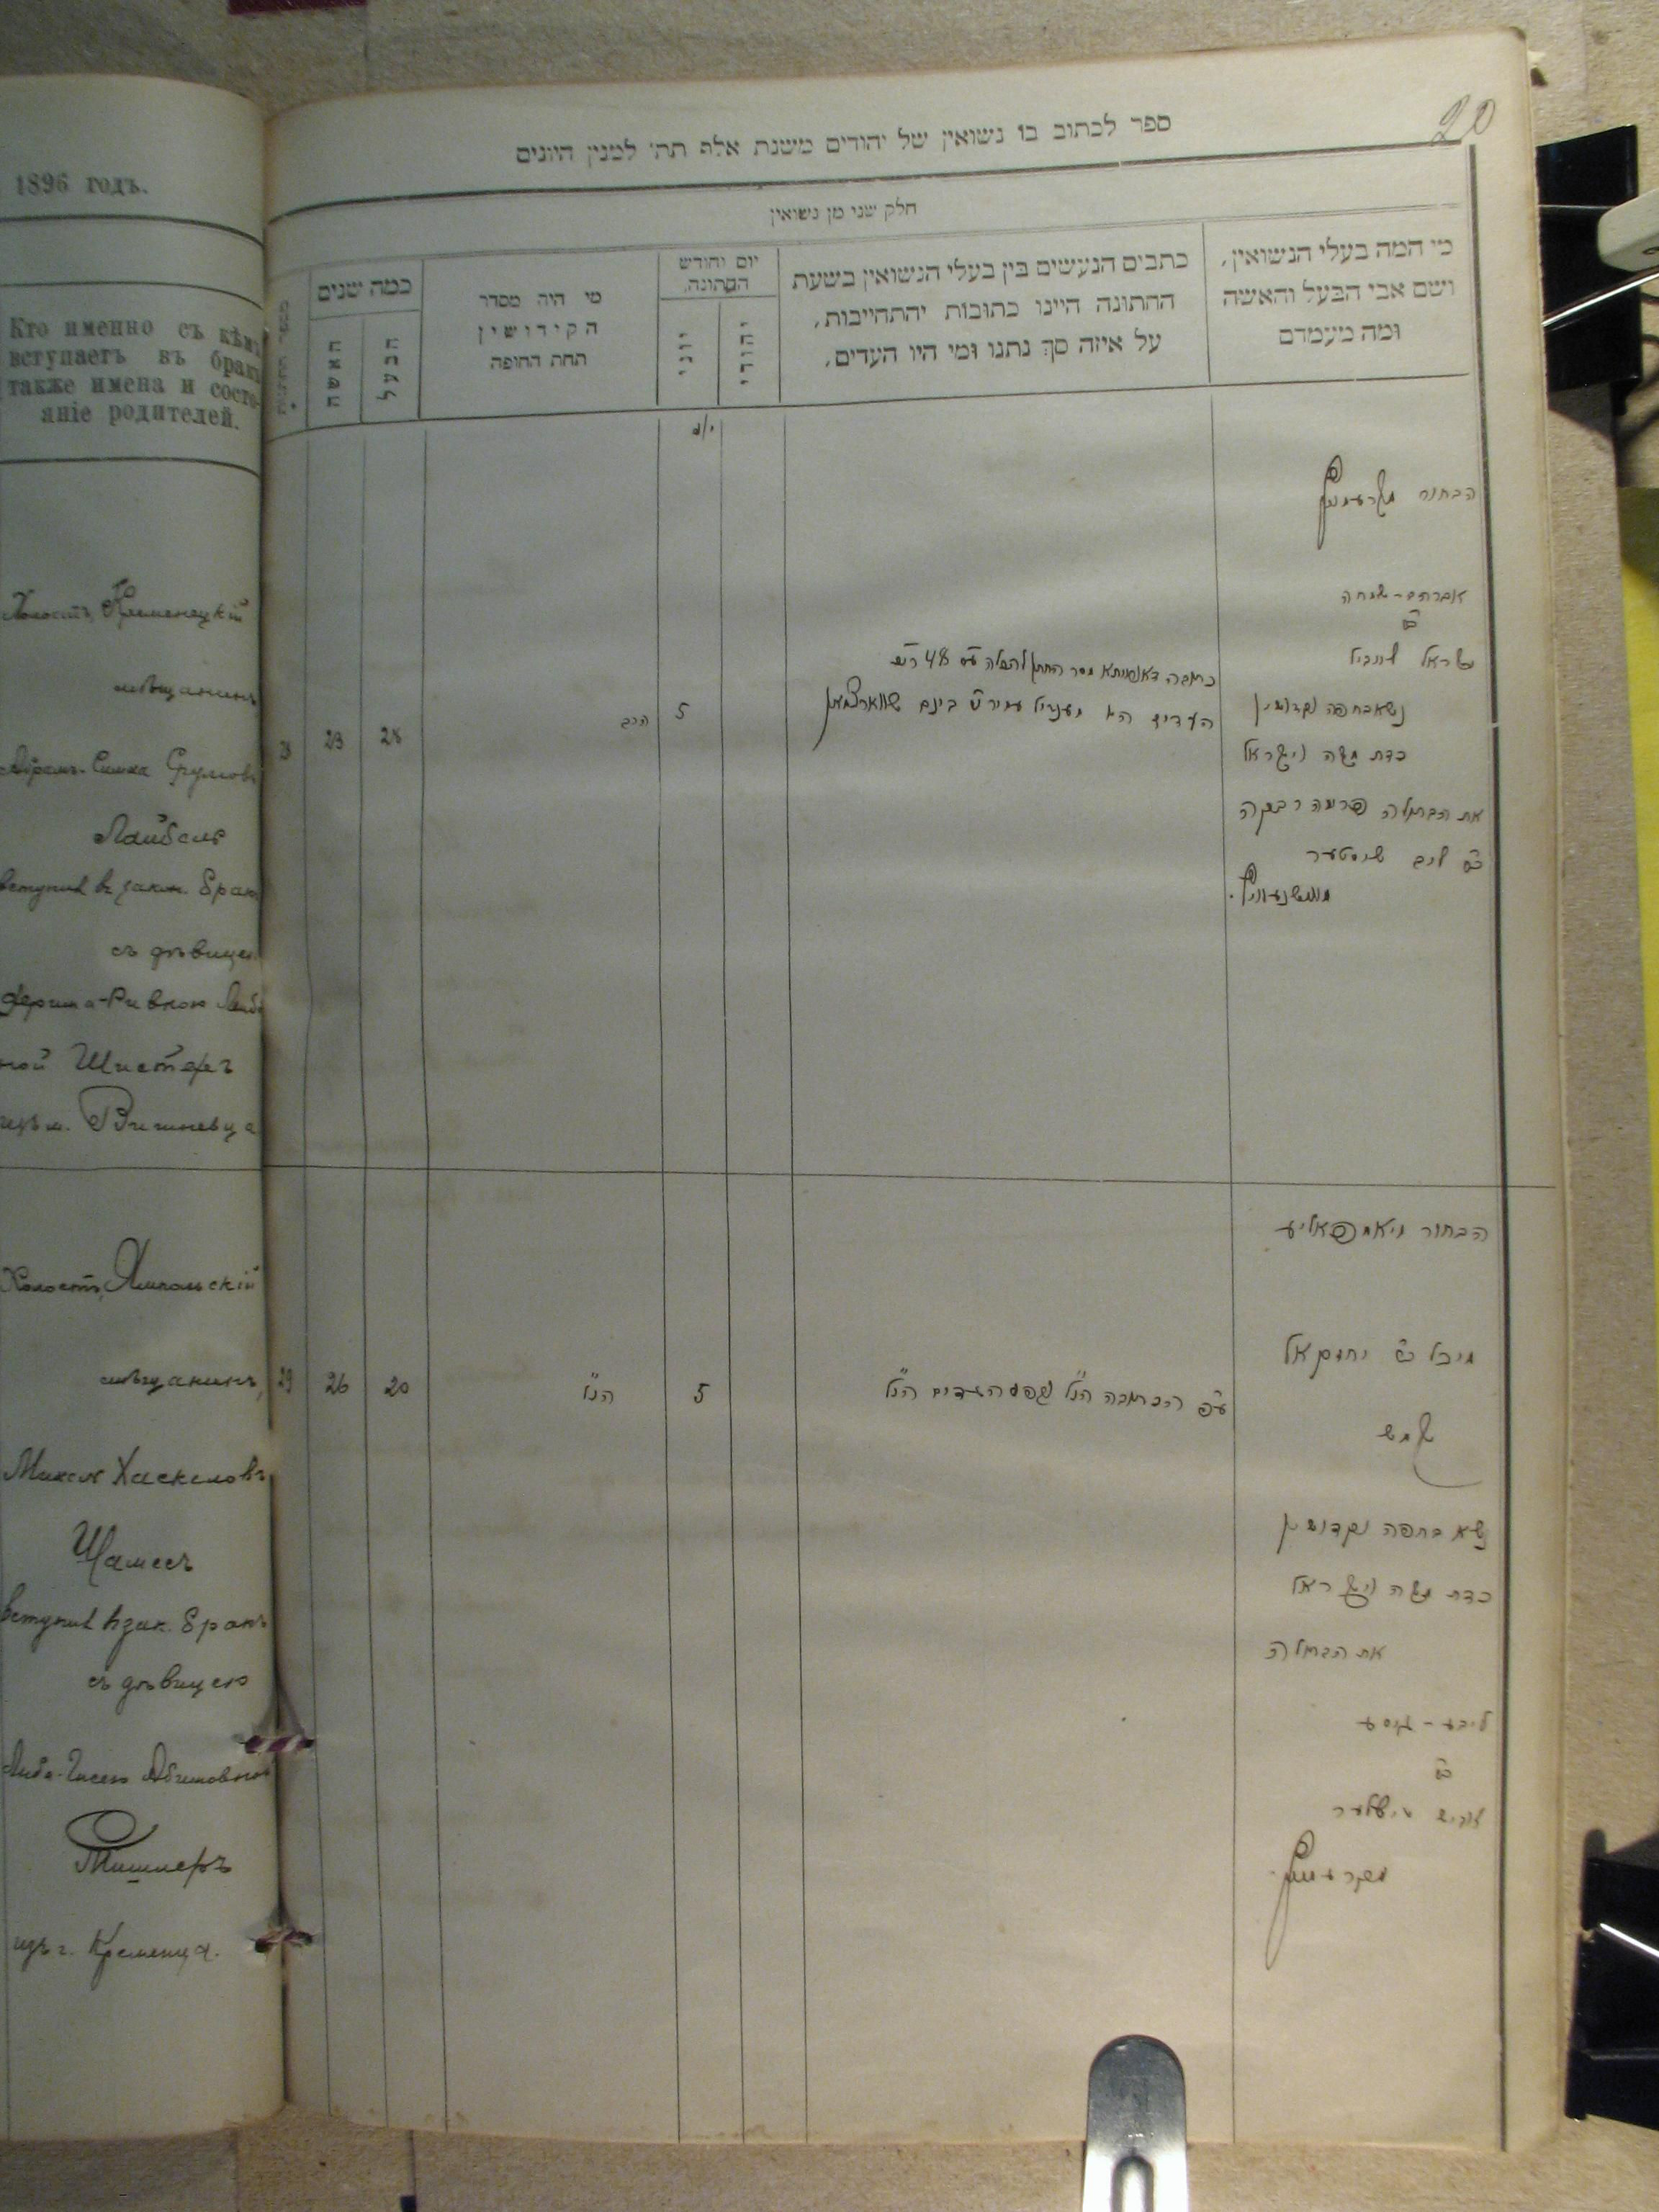 1896 годъ.
Кто именно съ кѣмъ
вступаетъ въ бракъ
также имена и состо-
яніе родителей.
Холостъ, Кременецкій
мѣщанинъ
Абрамъ-Симха Срулевъ
Лайбель
вступилъ въ закон. бракъ
съ дѣвицею
Фрима-Ривкою
ной Шистеръ
изъ м. Вишневца
Холостъ, Ямпольскій
мѣщанинъ,
Михель Хаскелевъ
Шамесъ
вступилъ в зак. бракъ
съ дѣвицею
Либа-Гисею Абрамовною
Тишлеръ
изъ г. Кременца.
20
ספר לכתוב בו נשואין של יהודים משנת אלף תת׳ למנין היונים
חלק שני מן נשואין
מי המה בעלי הנשואין,
ושם אבי הבעל והאשה
ומה מעמדם
כתבים הנעשים בין בעלי הנשואין בשעת
החתונה היינו כתובות והתחייבות,
על איזה סך נתנו ומי היו העדים,
יום וחודש
החתונה.
יהודי
יוני
מי היה מסדר
הקידושין
תחת החופה
כמה שנים
הבעל
האשה
הבחור
אברהם-שמחה
ב״ר
ישראל לייביל
נשא בחפה וקדושין
כדת משה וישראל
את הבתולה פרימה רבקה
ב״ר ליב שיסטער
כתובה דאורייתא מסר החתן להכלה עם 48 ר״כ
העדים ה״ה
5
הרב
28
23
הבחור יאמפאליע
מיכל ב״ר יחזקאל
שמש
נשא בחפה וקדושין
כדת משה וישראל
את הבתולה
ליבע-גיסע
ב״ר
טישלער
ע״פ הכתובה הנ״ל העדים הנ״ל
5
הנ״ל
20
26
29